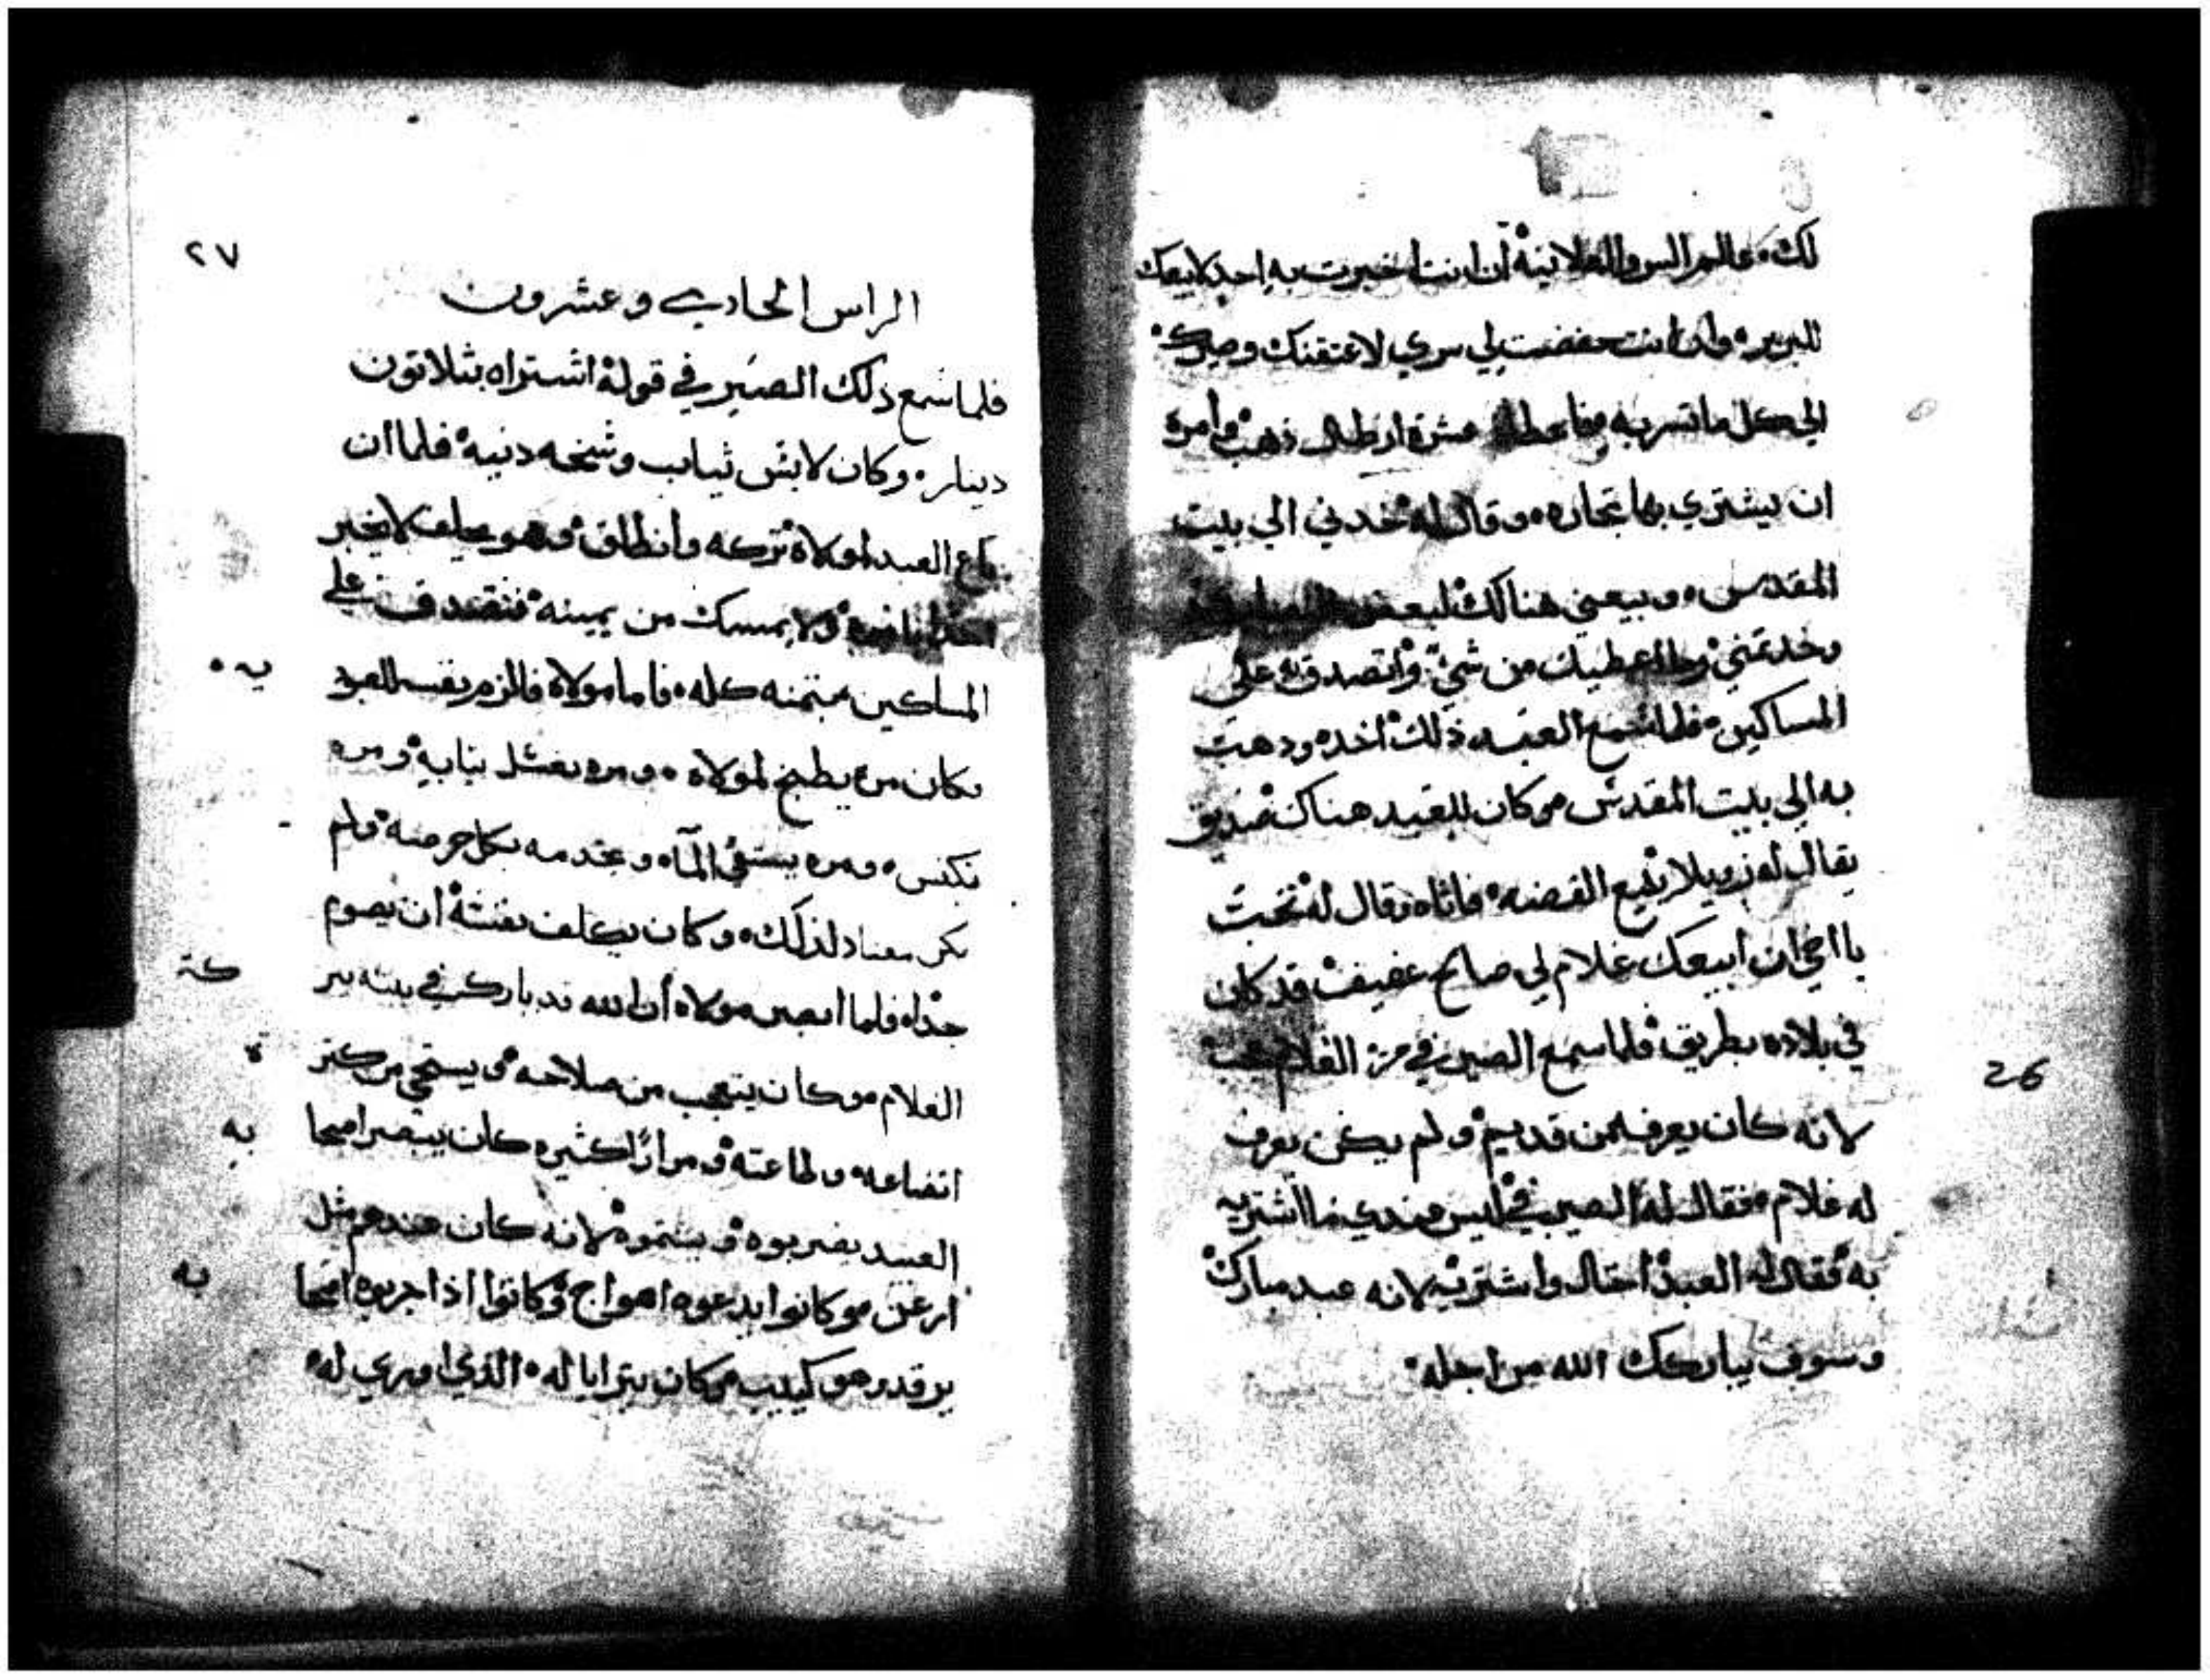 لك عالم السر والعلانية أن انت اخبرت به احد لابيعك
للبربر وان انت حفضت لي سري لاعتقنك وصيرك
الي كل ما تسر به فاعطاه عشرة ارطال ذهب وأمره
ان يشتري بها تجاره وقال له خدني الي بيت
المقدس وبيعني هنالك لبعض
وخد تمني وما اعطيك من شيء واتصدق به على
المساكين فلما سمع العبد ذلك أخده ودهب
به الي بيت المقدس وكان للعبد هناك صديق
يقال له يبيع الفضه فاتاه وقال له تحب
يا اخي ان ابيعك غلام لي صالح عفيف قد كان
في بلاده بطريق فلما سمع الصيرفي من الغلام عجب
لانه كان يعرفه من قديم ولم يكن يعرف
له غلام فقال له الصيرفي ليس عندي ما اشتريه
به فقال له العبد احتال واشتريه لانه عبد مبارك
وسوف يباركك الله من اجله
26
٢٧
الراس الحادي وعشرون
فلما سمع ذلك الصيرفي قوله اشتراه بثلاتون
دينار وكان لابس ثياب وسخه دنيه فلما أن
باع العبد لمولاه تركه وانطلق وهو يحلف لا يخبر
ولا يمسك من يمينه فتصدق علي
المساكين بتمنه كله فاما مولاه فالزم نفسه العبود يه
فكان مره يطبخ لمولاه ومره يغسل ثيابه ومره
يكنس ومره يستقي المآء ويخدمه بكل حرصه ولم
يكن معتاد لذلك وكان يكلف نفسه أن يصوم
جدًا فلما ابصر مولاه أن الله قد بارك في بيته ببر كة
الغلام وكان يتعجب من صلاحه ويستحي من كتر ة
اتضاعه وطاعته ومرارًا كثيره كان يبصر اصحا به
العبيد يضربوه ويشتموه لانه كان عندهم مثل
ارعن وكانوا يدعوه اهواج وكانوا اذا جربوه اصحا به
يرقد وهو كييب وكان يترايا له الذي اوري له